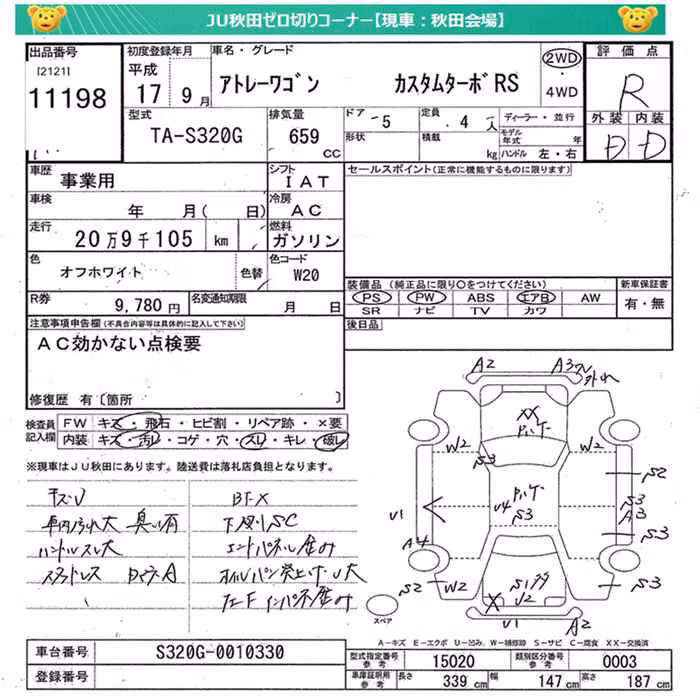 JU秋田ゼロ切りコーナー【現車:秋田会場】
出品番号
[2121]
11198
初度登録年月
平成
17年 9月
車名・グレード
アトレーワゴン カスタムターボRS
2WD
・
4WD
評価点
R
外装 内装
D D
型式
TA-S320G
排気量
659
CC
ドア
-5
形状
定員
4 人
積載
kg
ディーラー・並行
モデル年式 年
ハンドル 左・右
車歴
事業用
シフト
IAT
車検
年 月( 日)
冷房
AC
走行
20万9千105 km
燃料
ガソリン
色
オフホワイト
色替
色コード
W20
R券
9,780円
名変通知期限
月 日
セールスポイント(正常に機能するものに限ります)
装備品(純正品に限り○をつけてください)
PS PW ABS エアB AW
SR ナビ TV カワ
新車保証書
有・無
後日品
注意事項申告欄(不具合内容等は具体的に記入して下さい)
AC効かない点検要
修復歴 有〔箇所 〕
検査員
記入欄
FW キズ・飛石・ヒビ割・リペア跡・×要
内装 キズ・汚レ・コゲ・穴・スレ・キレ・破レ
※現車はJU秋田にあります。陸送費は落札店負担となります。
キズU
車内汚れ大 臭い有
ハンドルスレ大
下廻りSC
エンドパネル歪み
A2 A3
XX
W2 W2
S3
S2
V1
V4
S3
S3
A3
A4
S3
S2 W2
S3
X
V1 A2
スペア
A-キズ E-エクボ U-凹み、W-補修跡 S-サビ C-腐食 XX-交換済
車台番号
S320G-0010330
登録番号
型式指定番号
参考
15020
類別区分番号
参考
0003
車庫証明用
参考
長さ 339 cm 幅 147 cm 高さ 187 cm